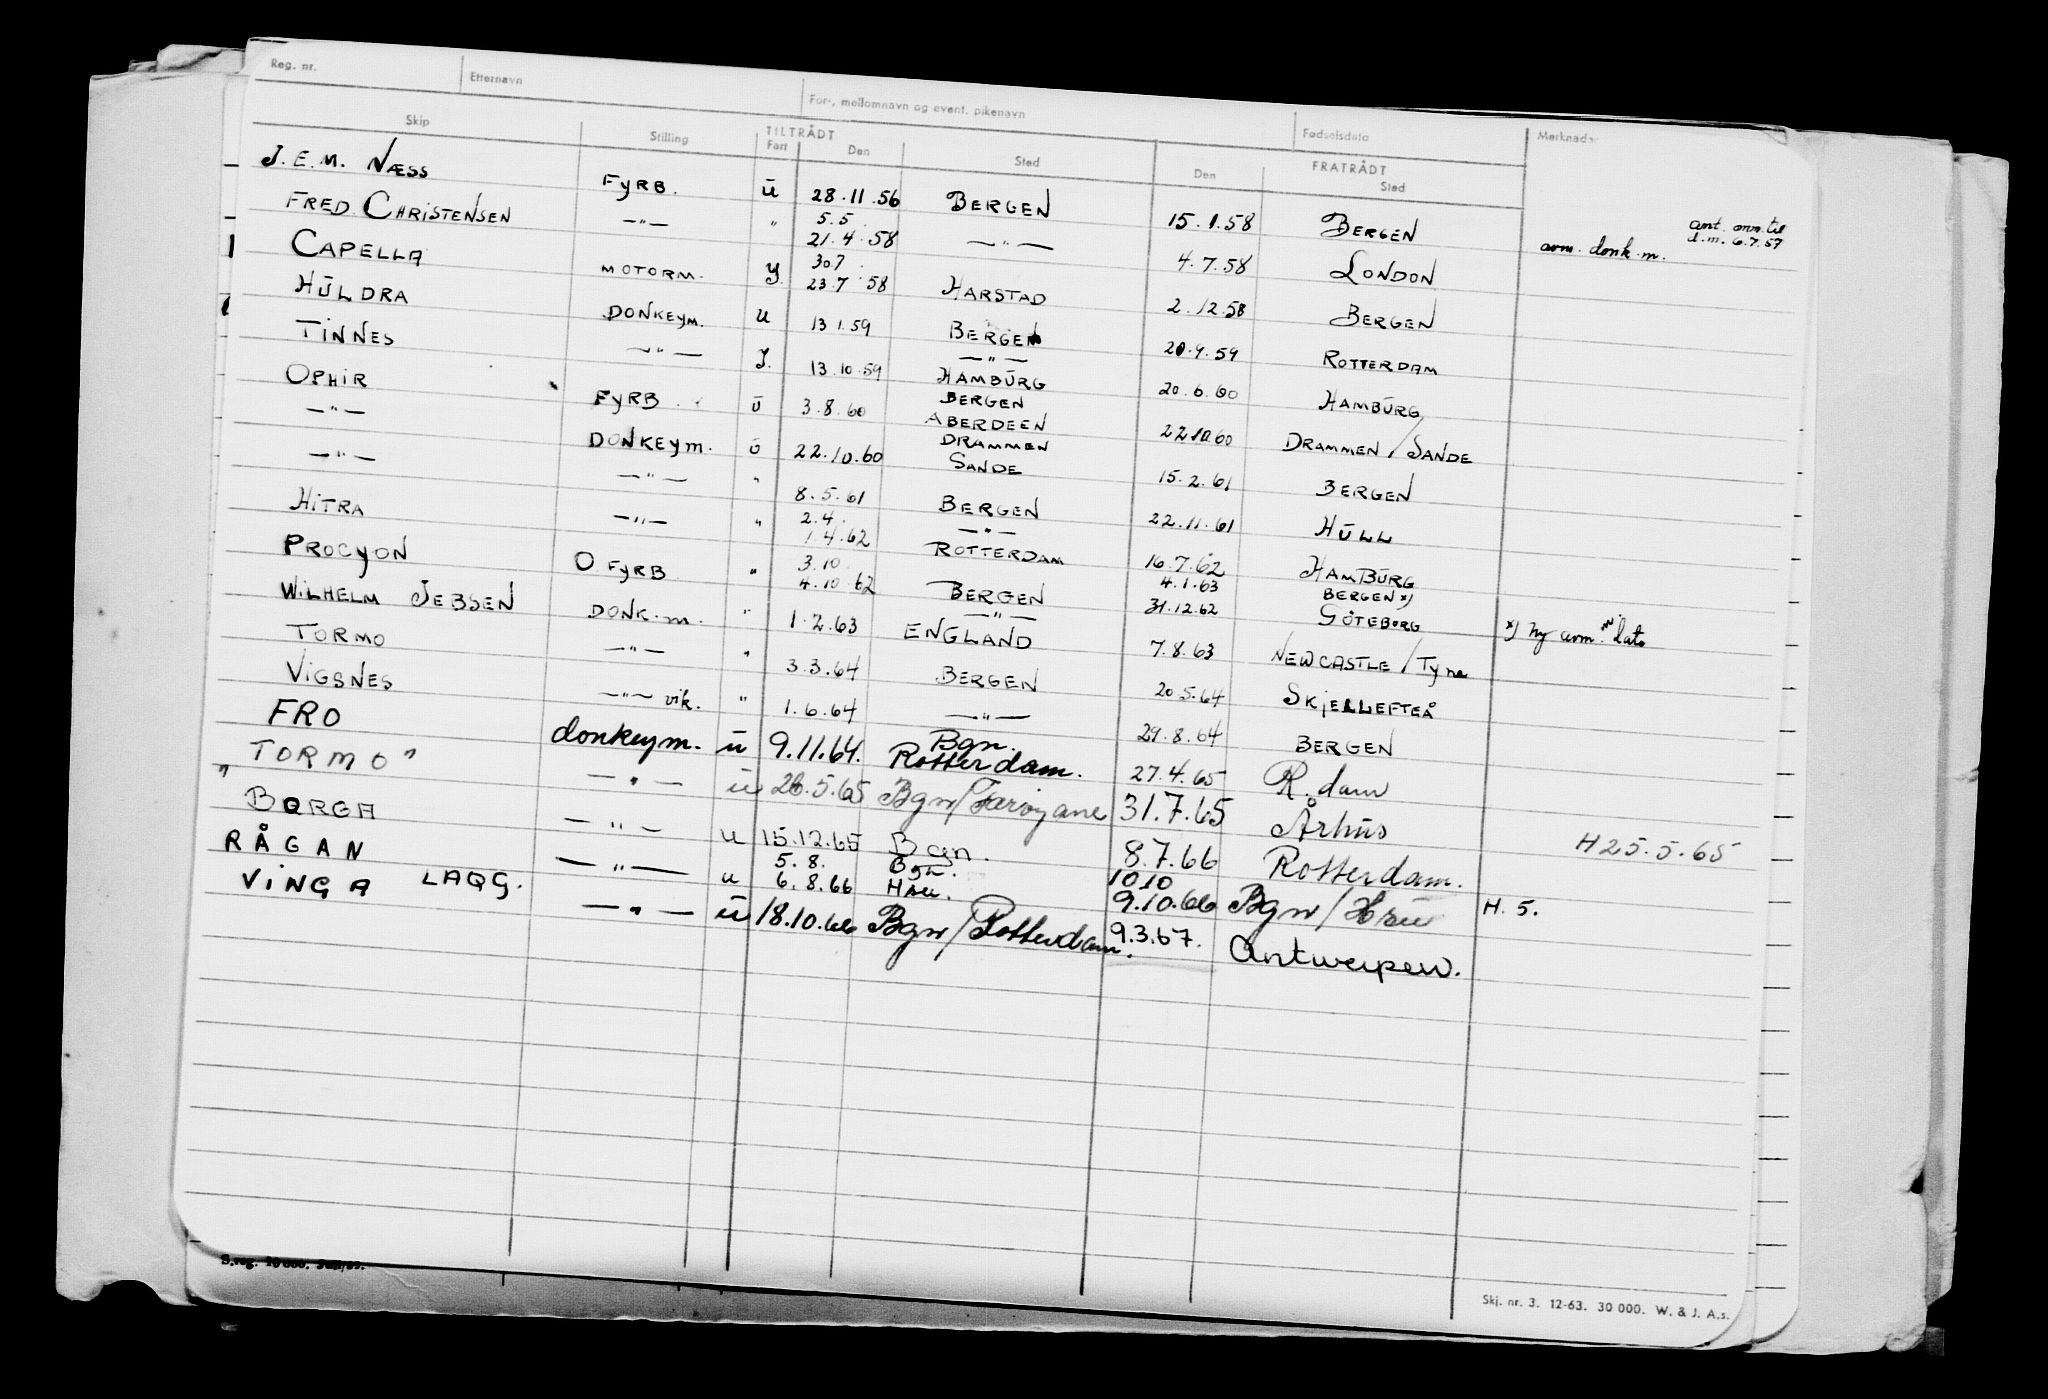 Reg. nr. Etternavn For-, mellomnavn og event. pikenavn Fødselsdato Merknader
Skip Stilling TILTRÅDT Fart Den Sted FRATRÅDT Den Sted
J. E. M. NÆSS FYRB. U 28.11.56 BERGEN 15.1.58 BERGEN avm. donk.m. ant. anm. til d.m. 6.7.57
FRED. CHRISTENSEN —"— " 5.5. 21.4.58 —"— 4.7.58 LONDON
CAPELLA MOTORM. Y. 30.7. 23.7.58 HARSTAD 2.12.58 BERGEN
HULDRA DONKEYM. U 13.1.59 BERGEN —"— 20.9.59 ROTTERDAM
TINNES —"— Y. 13.10.59 HAMBURG 20.6.60 HAMBURG
OPHIR FYRB. U 3.8.60 BERGEN ABERDEEN 22.10.60 DRAMMEN / SANDE
—"— DONKEYM. U 22.10.60 DRAMMEN SANDE 15.2.61 BERGEN
—"— —"— " 8.5.61 BERGEN 22.11.61 HULL
HITRA —"— " 2.4. 1.4.62 —"— ROTTERDAM 16.7.62 HAMBURG
PROCYON O FYRB " 3.10. 4.10.62 BERGEN —"— 4.1.63 31.12.62 BERGEN x) GÖTEBORG x) Ny avm. m/ dato
WILHELM JEBSEN DONK.m. " 1.2.63 ENGLAND 7.8.63 NEWCASTLE / Tyne
TORMO —"— " 3.3.64 BERGEN 20.5.64 SKJELLEFTEÅ
VIGSNES —"— vik. " 1.6.64 —"— 29.8.64 BERGEN
FRO donkeym. u 9.11.64. Bgn. Rotterdam. 27.4.65 R.dam
"TORMO" —"— u 20.5.65 Bgn/Færøyane 31.7.65 Århus H 25.5.65
BORGA —"— u 15.12.65 Bgn. 8.7.66 Rotterdam.
RÅGAN —"— u 5.8. 6.8.66 Bgn. 10.10 9.10.66 Bgn/ H. 5.
VINGA LAQG. —"— u 18.10.66 Bgn/Rotterdam. 9.3.67. Antwerpen.
S.reg.
Skj. nr. 3. 12-63. 30 000. W. & J. A.s.